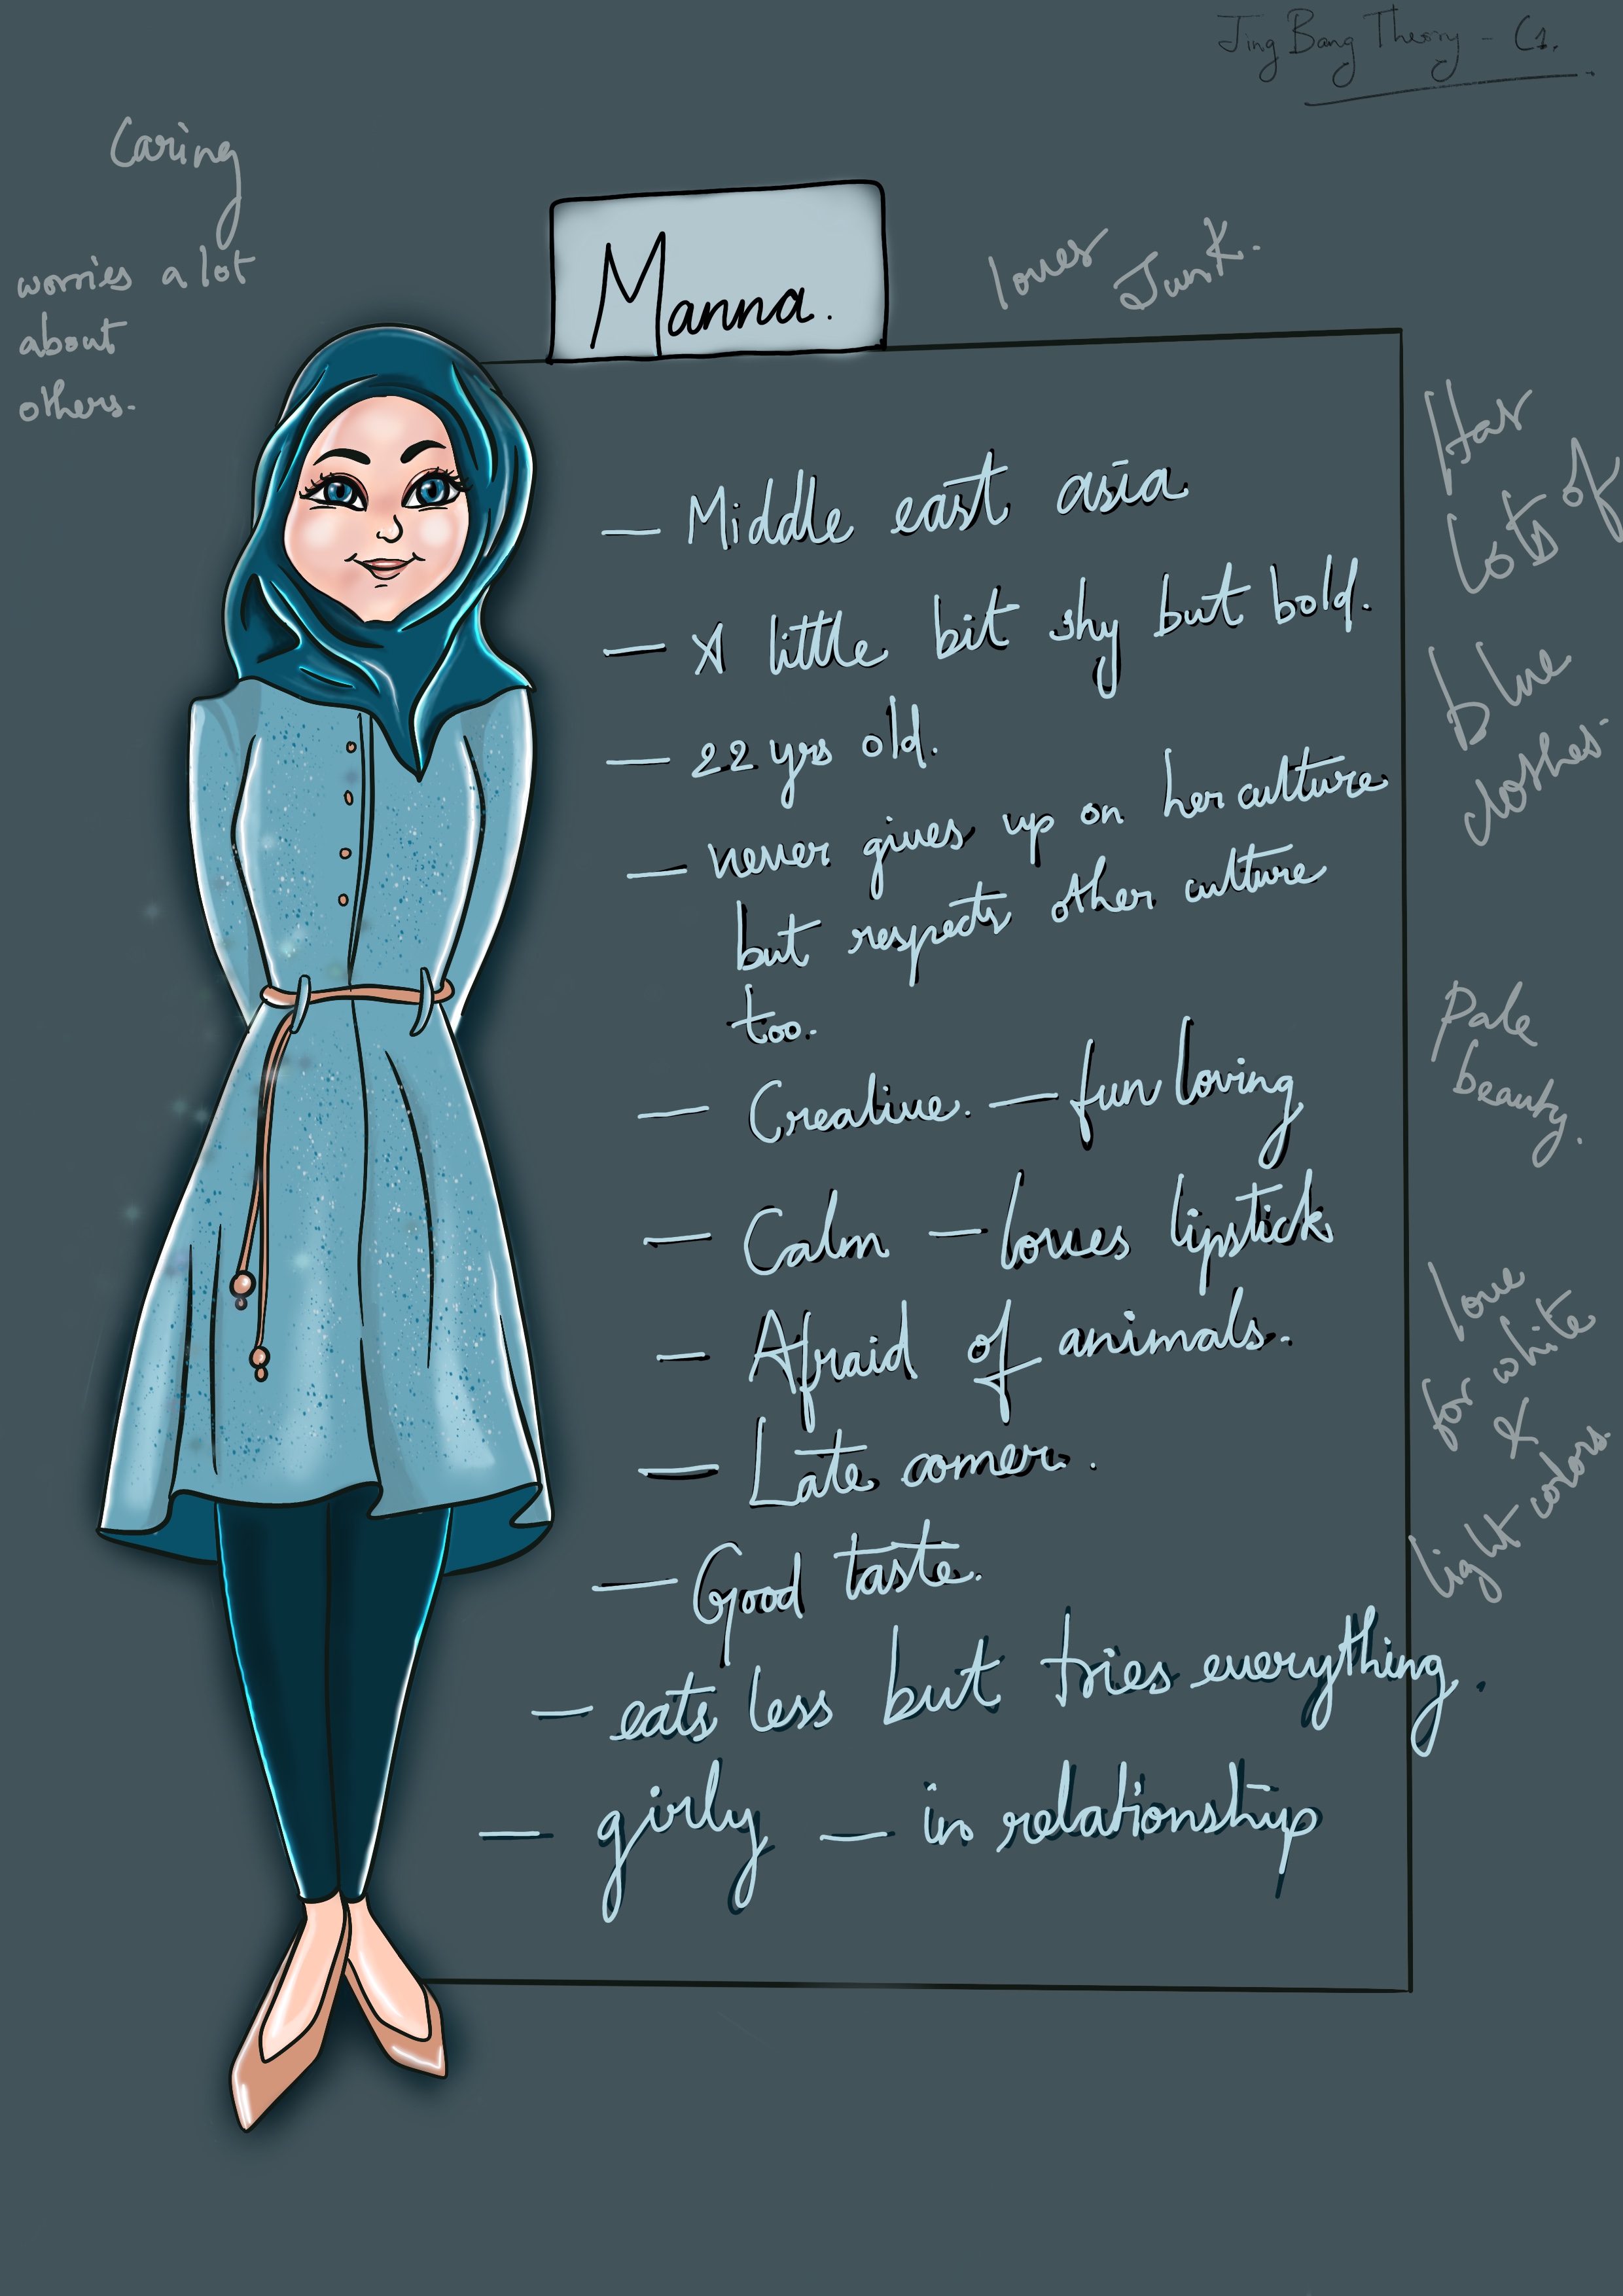 Jing Bang Theory - C1.
Caring
worries a lot
about
others.
Manna.
loves Junk.
— Middle east asia
— A little bit shy but bold.
— 22 yrs old.
— never gives up on her culture
but respects other culture
too.
— Creative. — fun loving
— Calm — loves lipstick
— Afraid of animals.
— Late comer.
— Good taste.
— eats less but tries everything.
— girly — in relationship
Has
Lots of
blue
clothes.
Pale
beauty.
love
for white
&
light colors.